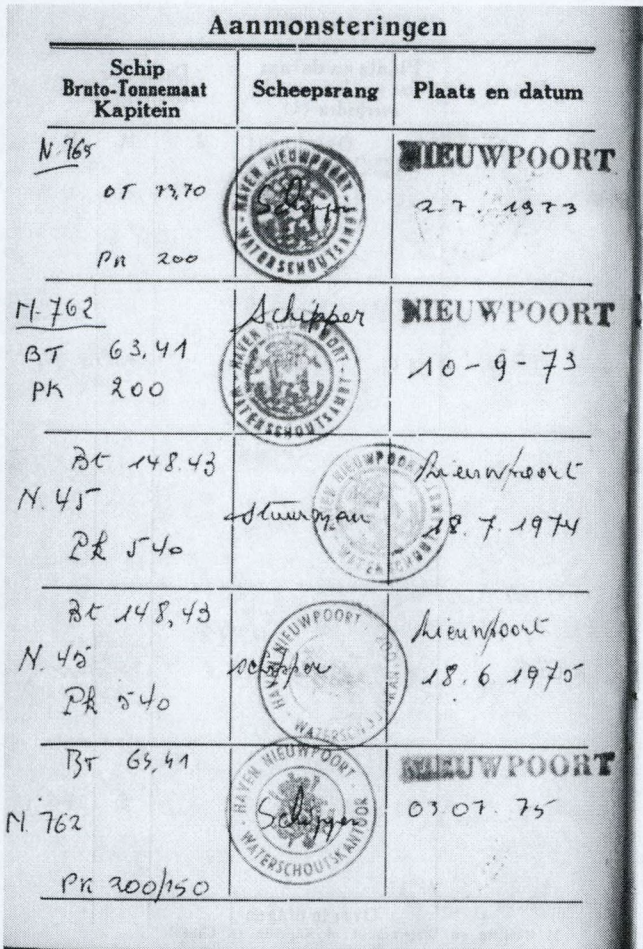 Aanmonsteringen
Schip
Bruto-Tonnemaat
Kapitein
Scheepsrang
Plaats en datum
N. 765
BT 73,70
PK 200
Schipper
HAVEN NIEUWPOORT - WATERSCHOUTSAMBT
NIEUWPOORT
2.7.1973
N-762
BT 63,41
PK 200
Schipper
HAVEN NIEUWPOORT - WATERSCHOUTSAMBT
NIEUWPOORT
10-9-73
Bt 148.43
N. 45
Pk 540
Stuurman
HAVEN NIEUWPOORT
Nieuwpoort
18.7.1974
Bt 148,43
N. 45
Pk 540
schipper
HAVEN NIEUWPOORT
Nieuwpoort
18.6.1975
BT 63,41
N. 762
PK 200/150
Schipper
HAVEN NIEUWPOORT - WATERSCHOUTSKANTOOR
NIEUWPOORT
03.07.75